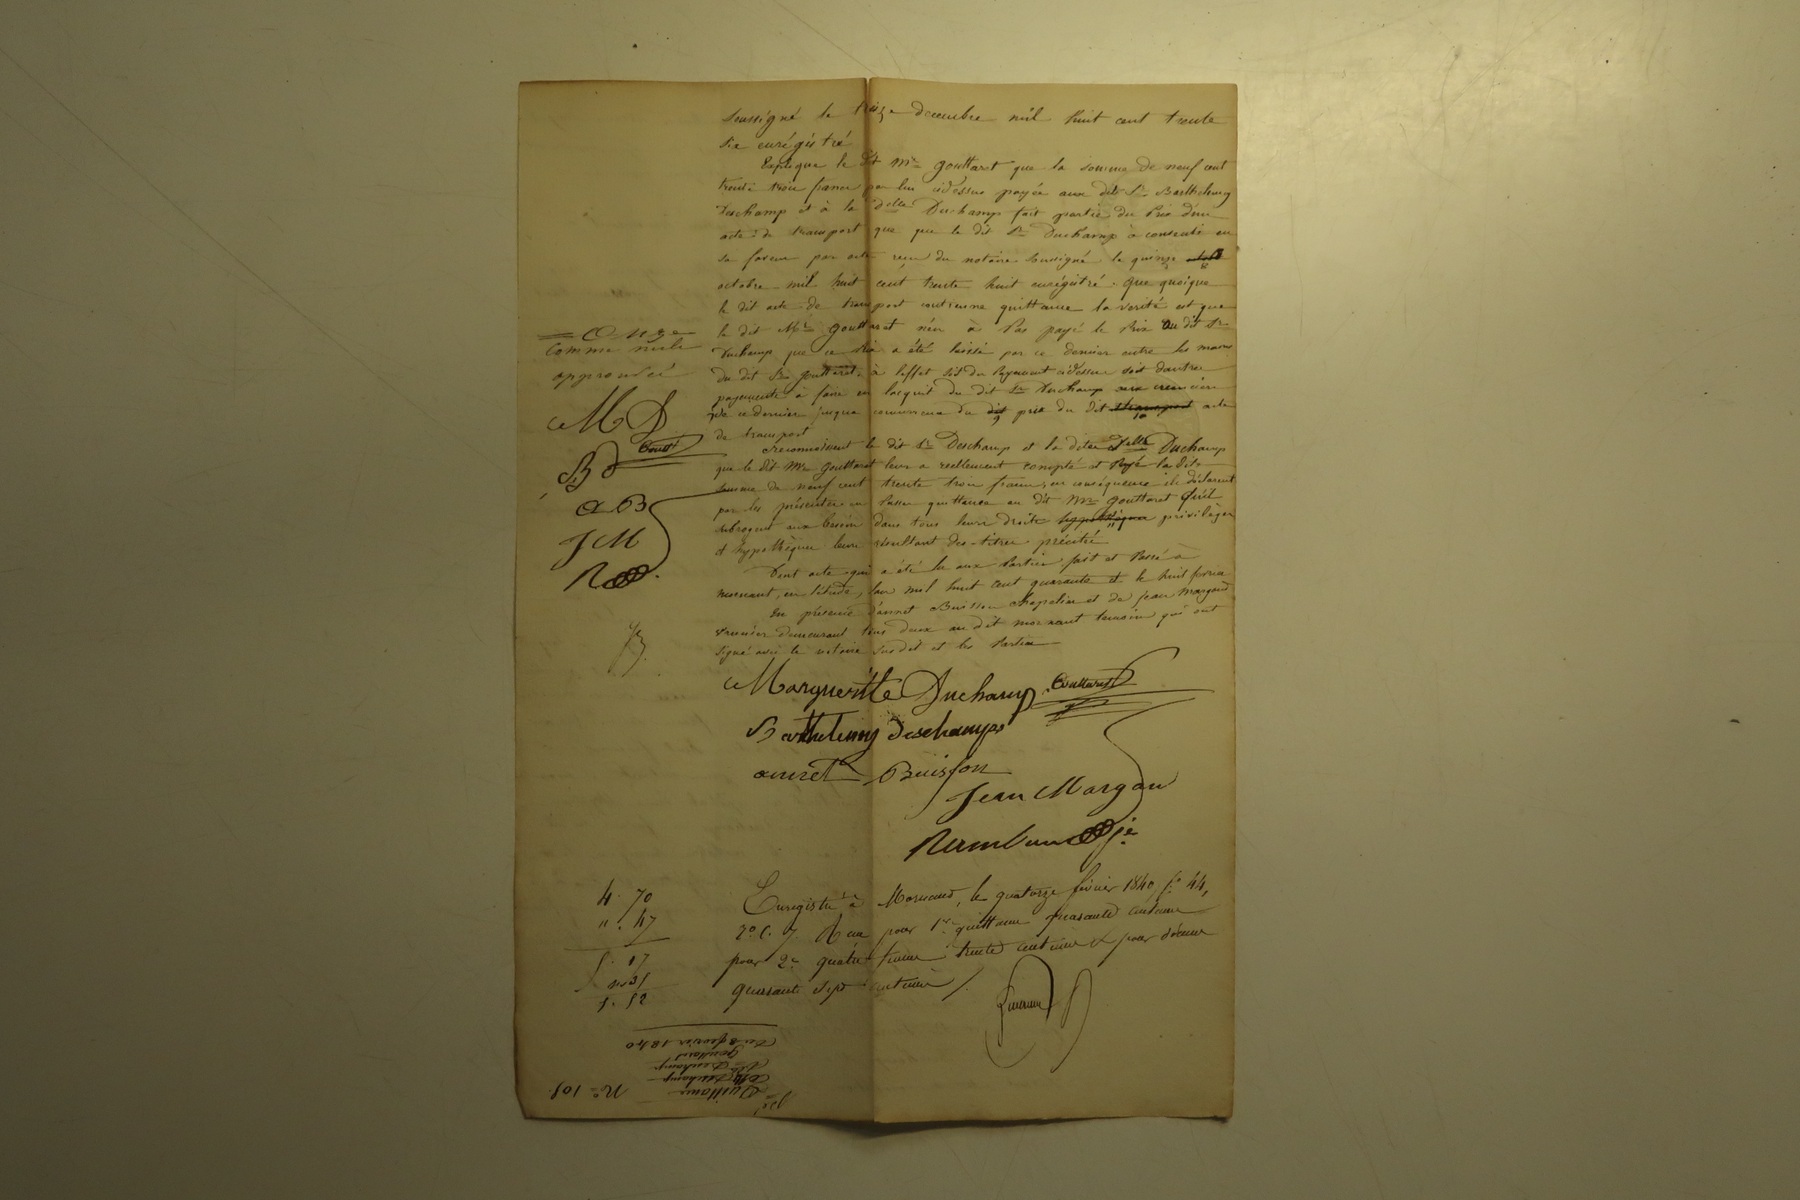 soussigné le treize decembre mil huit cent trente
six enrégistré
Explique le dit Mr gouttaret que la somme de neuf cent
trente trois francs par lui cidessus payée aux dits Sr Barthélemy
Deschamp et à la delle Duchamp fait partie du Prix d'un
acte de transport que que le dit Sr Duchamp à consenti en
sa faveur par acte recu du notaire soussigné le quinze
octobre mil huit cent trente huit enrégistré. que quoique
le dit acte de transport contienne quittance la verité est que
le dit Mr gouttaret n'en à Pas payé le Prix au dit Sr
Duchamp que ce Prix a été laissé par ce dernier entre les mains
du dit Sr gouttaret à l'effet soit du Payement cidessus soit dautres
payements à faire en lacquit du dit Sr Duchamp aux creanciers
de ce dernier jusqua concurrence du dit prix du dit transport acte
de transport
reconnaissent le dit Sr Deschamp et la dite delle Duchamp
que le dit Mr gouttaret leur a reellement compté et Payé la dite
somme de neuf cent trente trois francs, en conséquence ils déclarent
par les présentes en Passer quittance au dit Mr gouttaret quil
subrogent aux besoin dans tous leurs droits hypothèques privilèges
et hypothèques leurs résultant des titres précités
Dont acte qui a été lu aux Parties fait et Passé à
mornant, en l'étude, lan mil huit cent quarante et le huit fevrier
En présence d'annet Buisson chapelier et de jean margand
demeurant tous deux au dit mornant temoins qui ont
signé avec le notaire susdit et les Parties
onze
comme nuls
approuvé
M D
B D Goutt
a B
J M
R
Margueritte Duchamp Gouttaret
Barthelemy Deschamps
annet Buisson
Jean Margan
4. 70
". 47
5. 17
". 51
Enregistré à Mornant, le quatorze février 1840 fo 44,
Ro C. 7 Reçu pour 1re quittance quarante centimes
pour 2e quatre francs trente centimes & pour décime
quarante sept centimes /.
Du 8 fevrier 1840
gouttaret
Dlle Deuchamp
Deschamp
Quittance
No 105